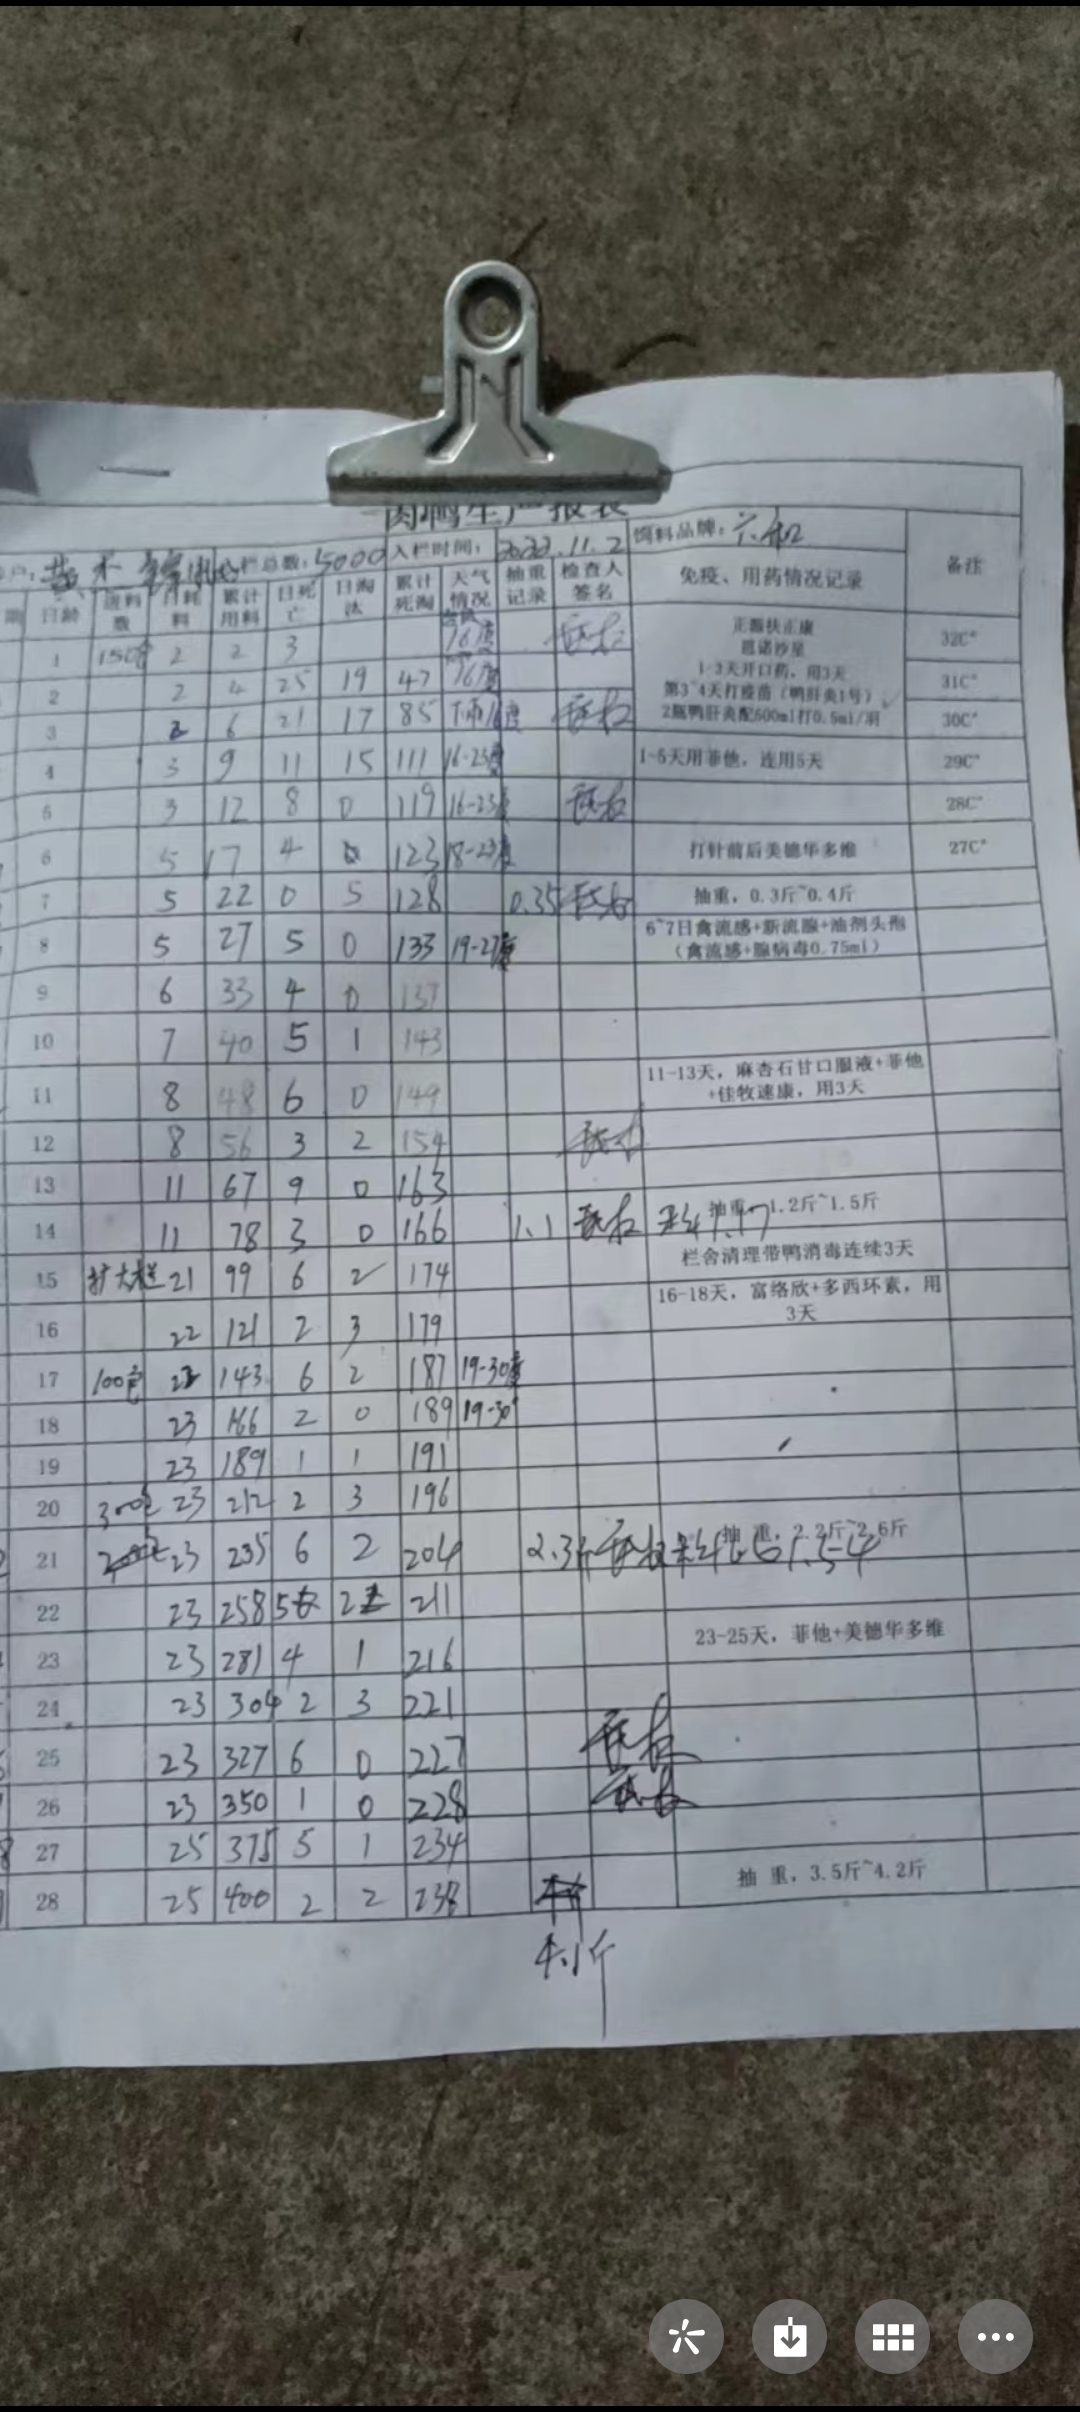 肉鸭生产报表
入栏总数：5000 入栏时间：2022.11.2 饲料品牌：六和
日龄 进料数 日耗料 累计用料 日死亡 日淘汰 累计死淘 天气情况 抽重记录 检查人签名 免疫、用药情况记录 备注
1 150包 2 2 3 16度 32C°
正源扶正康
恩诺沙星
1-3天开口药，用3天
第3~4天打疫苗（鸭肝炎1号）
2瓶鸭肝炎配600ml打0.5ml/羽
2 2 4 25 19 47 16度 31C°
3 2 6 21 17 85 16度 30C°
4 3 9 11 15 111 16-23度 1-5天用菲他，连用5天 29C°
5 3 12 8 0 119 16-23度 28C°
6 5 17 4 0 123 18-23度 打针前后美德华多维 27C°
7 5 22 0 5 128 0.35 抽重，0.3斤~0.4斤
8 5 27 5 0 133 19-27度 6~7日禽流感+新流腺+油剂头孢
（禽流感+腺病毒0.75ml）
9 6 33 4 0 137
10 7 40 5 1 143
11 8 48 6 0 149 11-13天，麻杏石甘口服液+菲他
+佳牧速康，用3天
12 8 56 3 2 154
13 11 67 9 0 163
14 11 78 3 0 166 1.1 抽重，1.2斤~1.5斤
15 扩大栏 21 99 6 2 174 栏舍清理带鸭消毒连续3天
16 22 121 2 3 179 16-18天，富络欣+多西环素，用
3天
17 100包 22 143 6 2 187 19-30度
18 23 166 2 0 189 19-30°
19 23 189 1 1 191
20 300包 23 212 2 3 196
21 23 235 6 2 204 2.3斤 抽 重，2.2斤~2.6斤
22 23 258 5 2 211
23 23 281 4 1 216 23-25天，菲他+美德华多维
24 23 304 2 3 221
25 23 327 6 0 227
26 23 350 1 0 228
27 25 375 5 1 234
28 25 400 2 2 238 抽 重，3.5斤~4.2斤
4.1斤